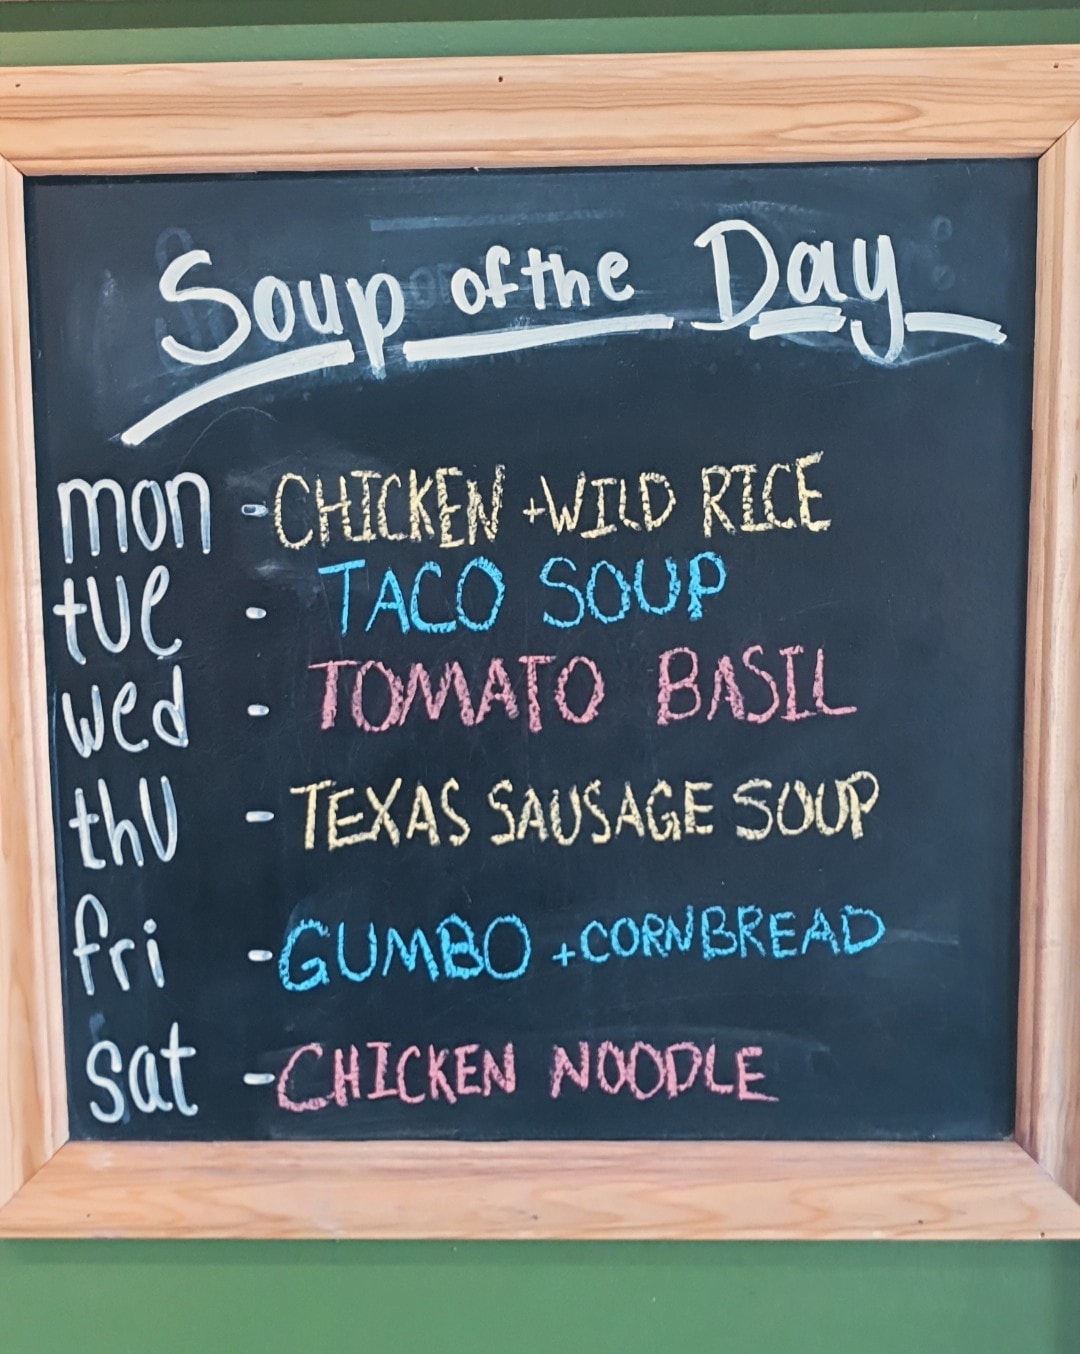 Soup of the Day
mon - CHICKEN + WILD RICE
tue - TACO SOUP
wed - TOMATO BASIL
thU - TEXAS SAUSAGE SOUP
fri - GUMBO + CORNBREAD
sat - CHICKEN NOODLE